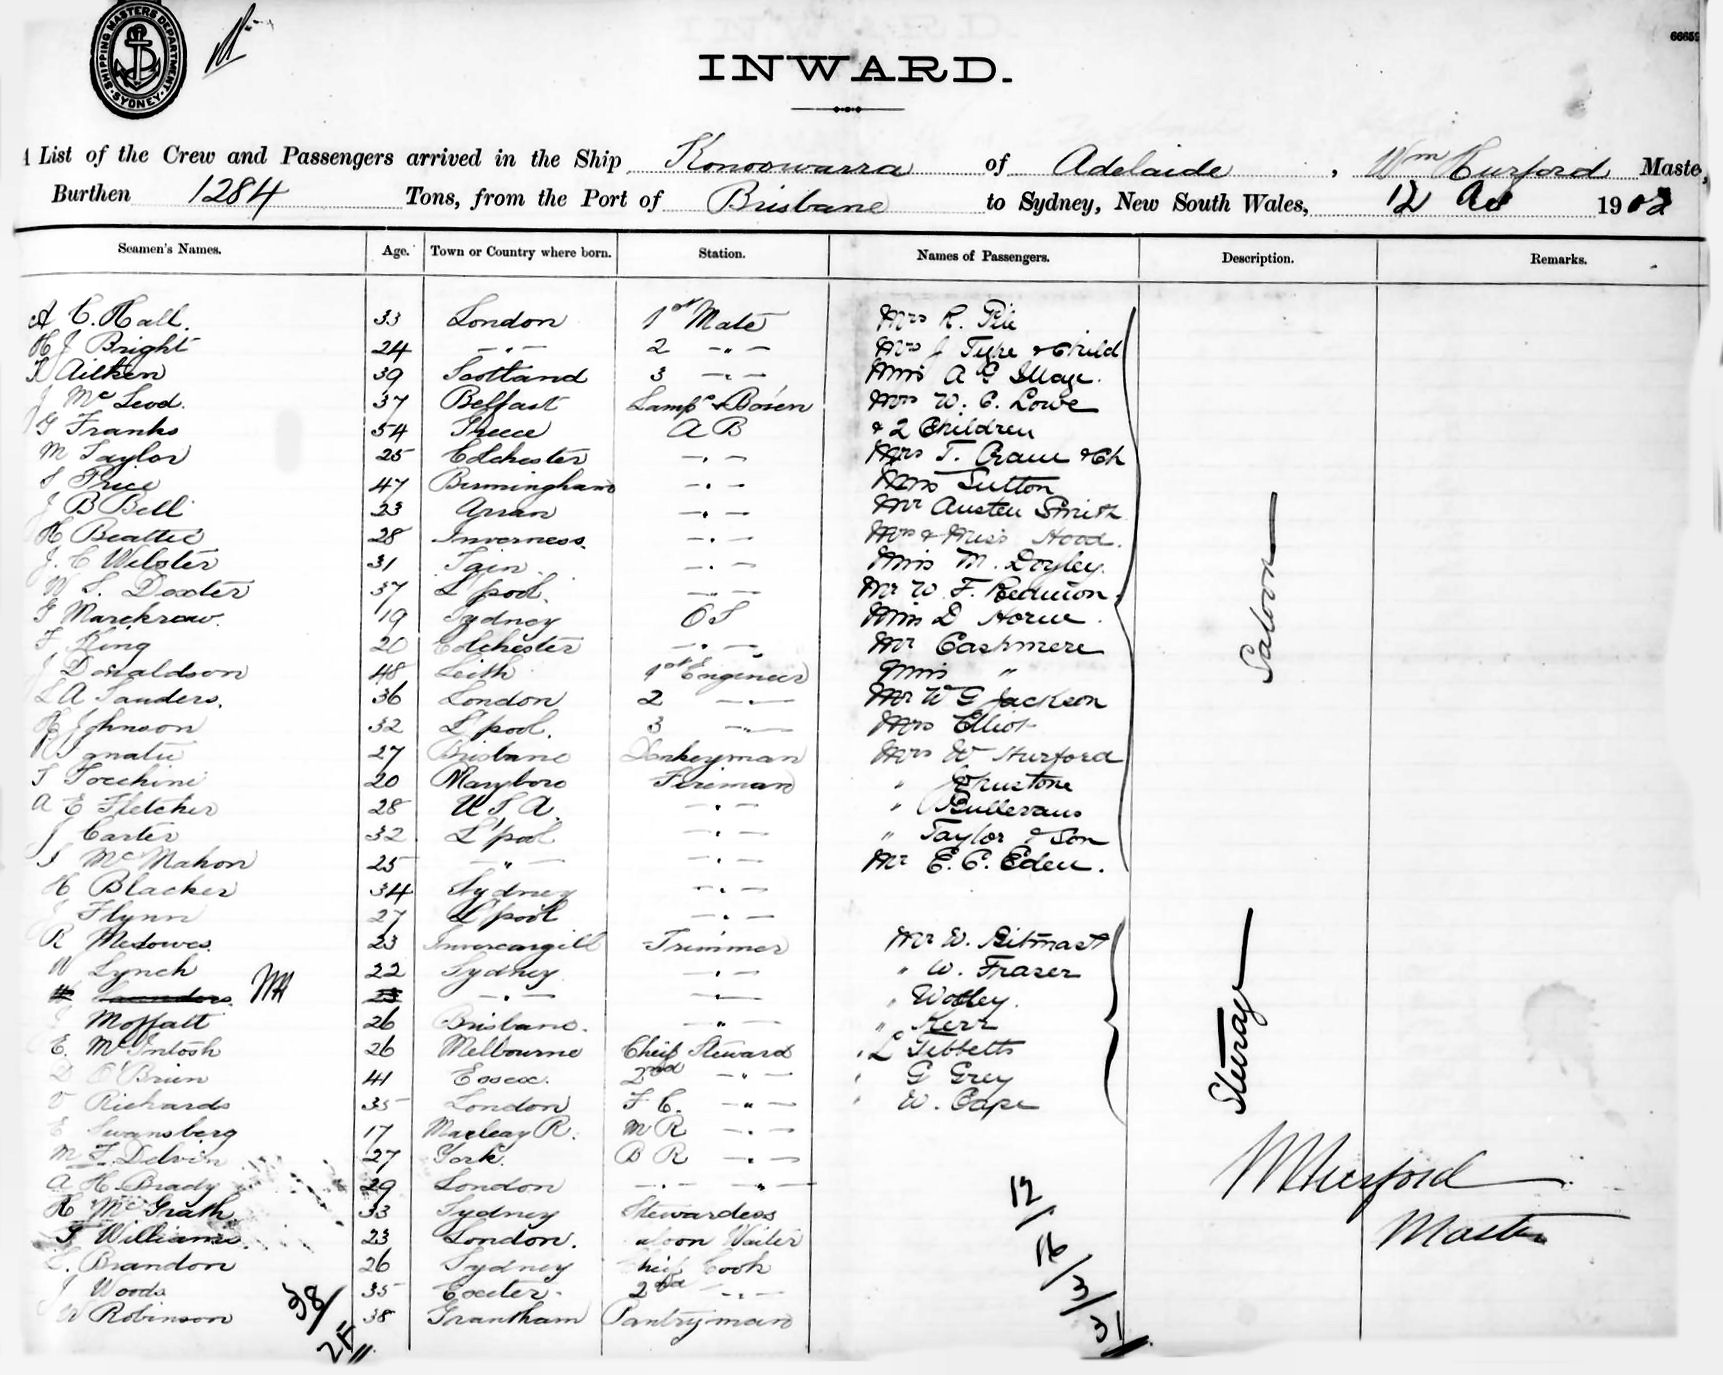 SHIPPING MASTERS DEPARTMENT
SYDNEY
66659
INWARD.
List of the Crew and Passengers arrived in the Ship Konoowarra of Adelaide, Wm Hurford Maste,
Burthen 1284 Tons, from the Port of Brisbane to Sydney, New South Wales, 12 1902
Seamen's Names. Age. Town or Country where born. Station. Names of Passengers. Description. Remarks.
A C. Hall. 33 London 1st Mate Mrs R. Pile
H J Bright 24 — " — 2 — " — Mrs J Tyke & Child
Aitken 39 Scotland 3 — " — Miss A G
J McLeod. 37 Belfast Lamps & Bosen Mrs W. C. Lowe
G Franks 54 Greece A B & 2 Children
M Taylor 25 Colchester — " — Mrs T. Crane & Ch
S Price 47 Birmingham — " — Miss Sutton
J B Bell 23 Arran — " — Mr Austen Smith
H Beattie 28 Inverness. — " — Mrs & Miss Hood.
J. C Webster 31 Tain — " — Miss M. Doyley.
W S. Dexter 37 L'pool. — " — Mr W. F. Redmon
G 19 Sydney O S Miss D Horne.
F King 20 Colchester — " — Mr Cashmere
J Donaldson 48 Leith 1st Engineer Miss "
L A Sanders. 36 London 2 — " — Mr W G Jackson
H Johnson 32 L'pool. 3 — " — Mrs Elliot
27 Brisbane Donkeyman Mrs W Hurford
20 Maryboro Fireman " Johnstone
A E Fletcher 28 U.S.A. — " — "
J Carter 32 L'pool — " — " Taylor & Son
S McMahon 25 — " — — " — Mr E. C. Eden.
H Blacker 34 Sydney — " —
Flynn 27 L'pool — " —
R Medowes 23 Invercargill Trimmer Mr W. Bitmast
W Lynch 22 Sydney — " — " W. Fraser
Saunders. WH 23 — " — — " — " Wolley.
Moffatt 26 Brisbane. — " — " Kerr
E. McIntosh 26 Melbourne Cheif Steward " L Tibbetts
D O'Brien 41 Essex. 2nd — " — " G Grey
V Richards 35 London F C. — " — " W. Cape
E Swansberg 17 Macleay R. M R — " —
M F. Delvin 27 York. B R — " —
A H. Brady 29 London — " — — " —
H McGrath 33 Sydney Stewardess
F Williams. 23 London. aloon Waiter
L. Brandon 26 Sydney heif Cook
J Woods 35 Exeter. 2nd — " —
W Robinson 38 Grantham Pantryman
Saloon
Steerage
WHurford
Master
38/
2F
12/
16/
3/
31